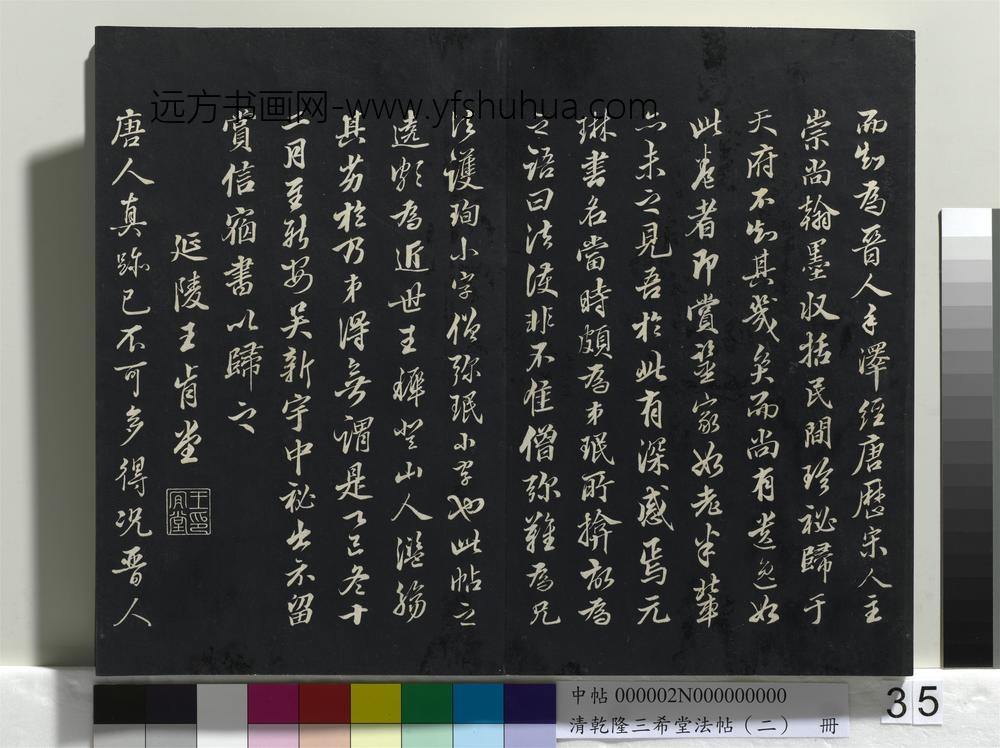 而知為晉人手澤經唐歷宋人主
崇尚翰墨収括民間珍祕歸于
天府不知其幾矣而尚有遺逸如
此卷者即賞鑒家如老米輩
亦未之見吾於此有深感焉元
琳書名當時頗為弟珉所揜故為
之語曰法護非不佳僧彌難為兄
法護珣小字僧彌珉小字也此帖之
遠衘為近世王穉登山人濫觴
其劣於乃弟得無謂是乙巳冬十
二月至新安吳新宇中祕出示留
賞信宿書以歸之
延陵王肯堂
王肯堂印
唐人真跡已不可多得況晉人
远方书画网-www.yfshuhua.com
中帖 000002N000000000
清乾隆三希堂法帖（二） 冊
35